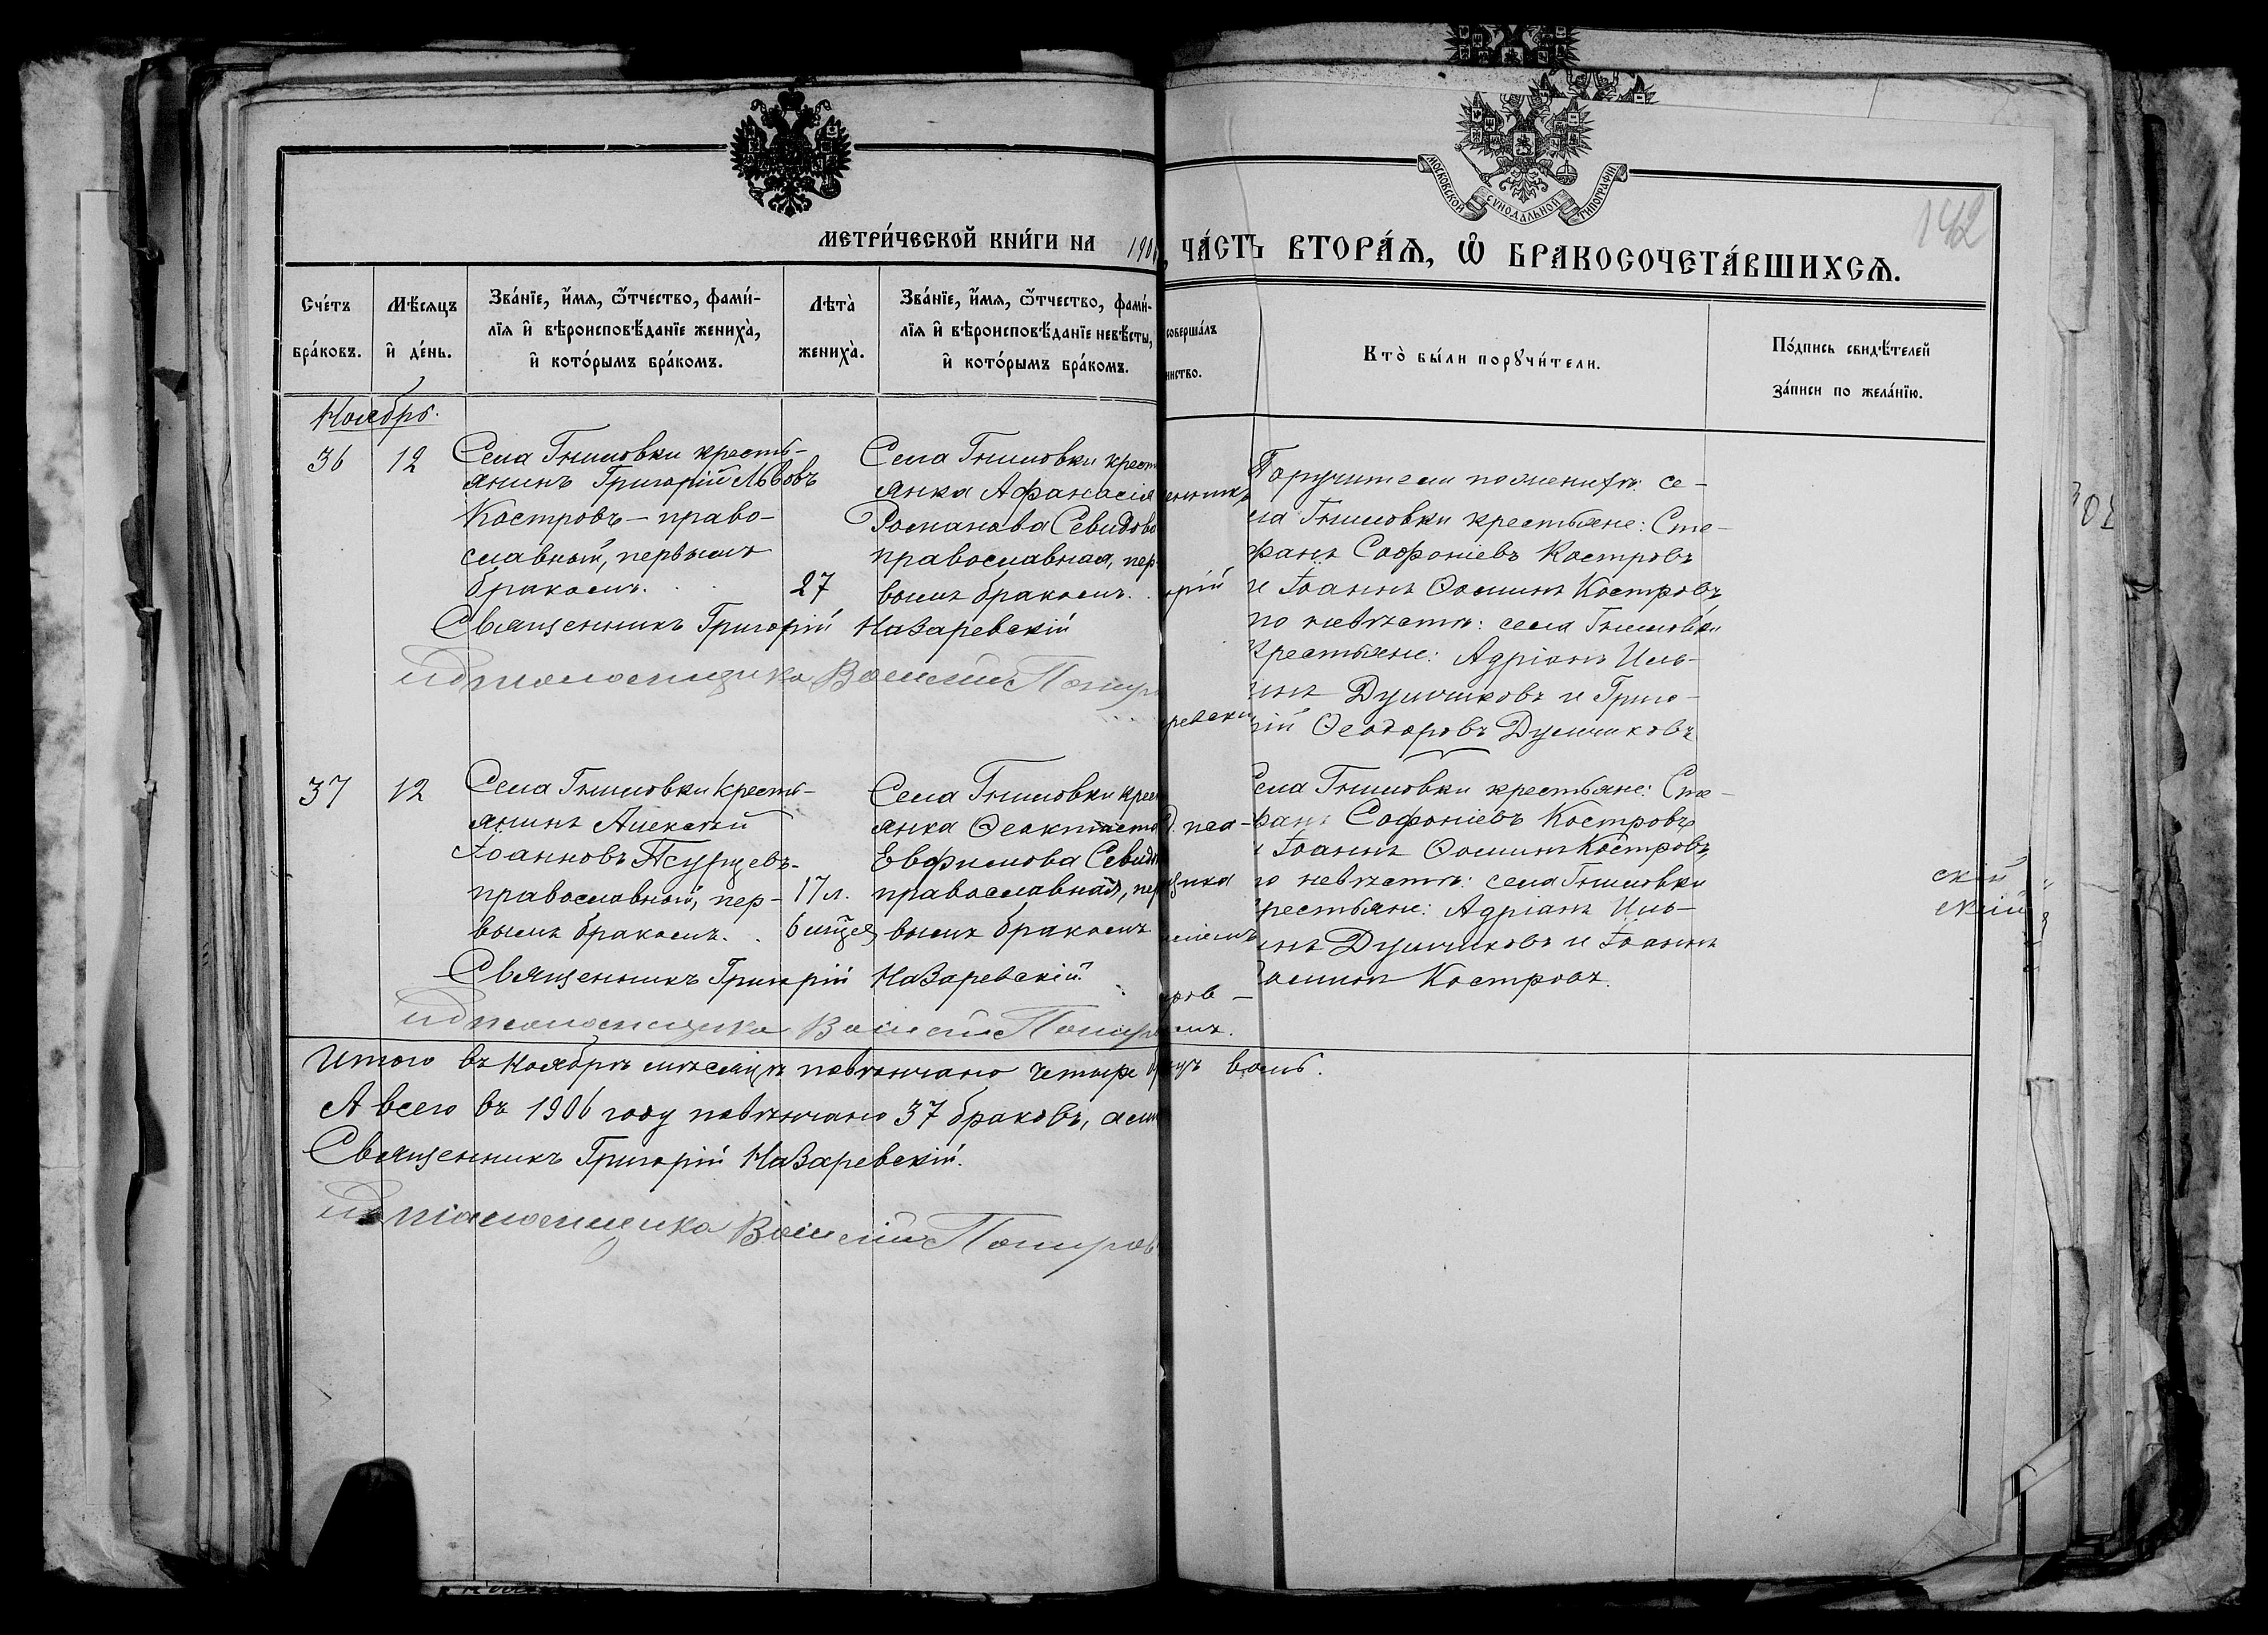 МОСКОВСКОЙ СУНОДАЛЬНОЙ ТИПОГРАФІИ
142
МЕТРИ́ЧЕСКОЙ КНИ́ГИ НА 1906
, ЧА́СТЬ ВТОРА́Ѧ, Ѽ БРАКОСОЧЕТА́ВШИХСѦ.
Сче́тъ бра́ковъ.
Мѣ́сяцъ и де́нь.
Зва́нїе, и́мѧ, ѻ́тчество, фами́-
лїѧ и вѣроисповѣ́данїе жениха̀,
и кото́рымъ бра́комъ.
Лѣта̀ жениха̀.
Зва́нїе, и́мѧ, ѻ́тчество, фами́-
лїѧ и вѣроисповѣ́данїе невѣ́сты,
и кото́рымъ бра́комъ.
соверша́лъ
инство.
Кто̀ бы́ли порꙋчи́тели.
По́дпись свидѣ́телей
за́писи по жела́нїю.
Ноябрь.
36
12
Села Гниловки кресть-
янинъ Григорій Львовъ
Костровъ - право-
славный, первымъ
бракомъ.
27
Села Гниловки крест
янка Афанасія
Романова Севидова
православная, пер
вымъ бракомъ.
Священникъ Григорій Назаревскій
Поручители по женихѣ: се-
ла Гниловки крестьяне: Сте-
фанъ Софоніевъ Костровъ
и Іоаннъ Ѳоминъ Костровъ
по невѣстѣ: села Гнилов́ки
крестьяне: Адріанъ Иль-
инъ Думчиковъ и Григо-
рій Ѳеодоровъ Думчиковъ
енникъ
орій
ревски
псаломщика Василій
37
12
Села Гниловки кресть-
янинъ Алексѣй
Іоанновъ Псурцевъ-
православный, пер-
вымъ бракомъ.
17 л.
6 мѣся
Села Гниловки крес
янка Ѳеоктиста
Евфимова Севид
православная, пер
вымъ бракомъ
Священникъ Григорій Назаревскій
псаломщика Василій
Села Гниловки крестьяне: Сте-
фанъ Софоніевъ Костровъ
и Іоаннъ Ѳоминъ Костровъ,
по невѣстѣ: села Гниловки
крестьяне: Адріанъ Иль-
инъ Думчиковъ и Іоаннъ
Ѳоминъ Костровъ.
пса-
щика
ров-
скій
скій
Итого въ Ноябрѣ мѣсяцѣ повѣнчано четыре
А всего въ 1906 году повѣнчано 37 браковъ,
Священникъ Григорій Назаревскій.
псаломщика Василій